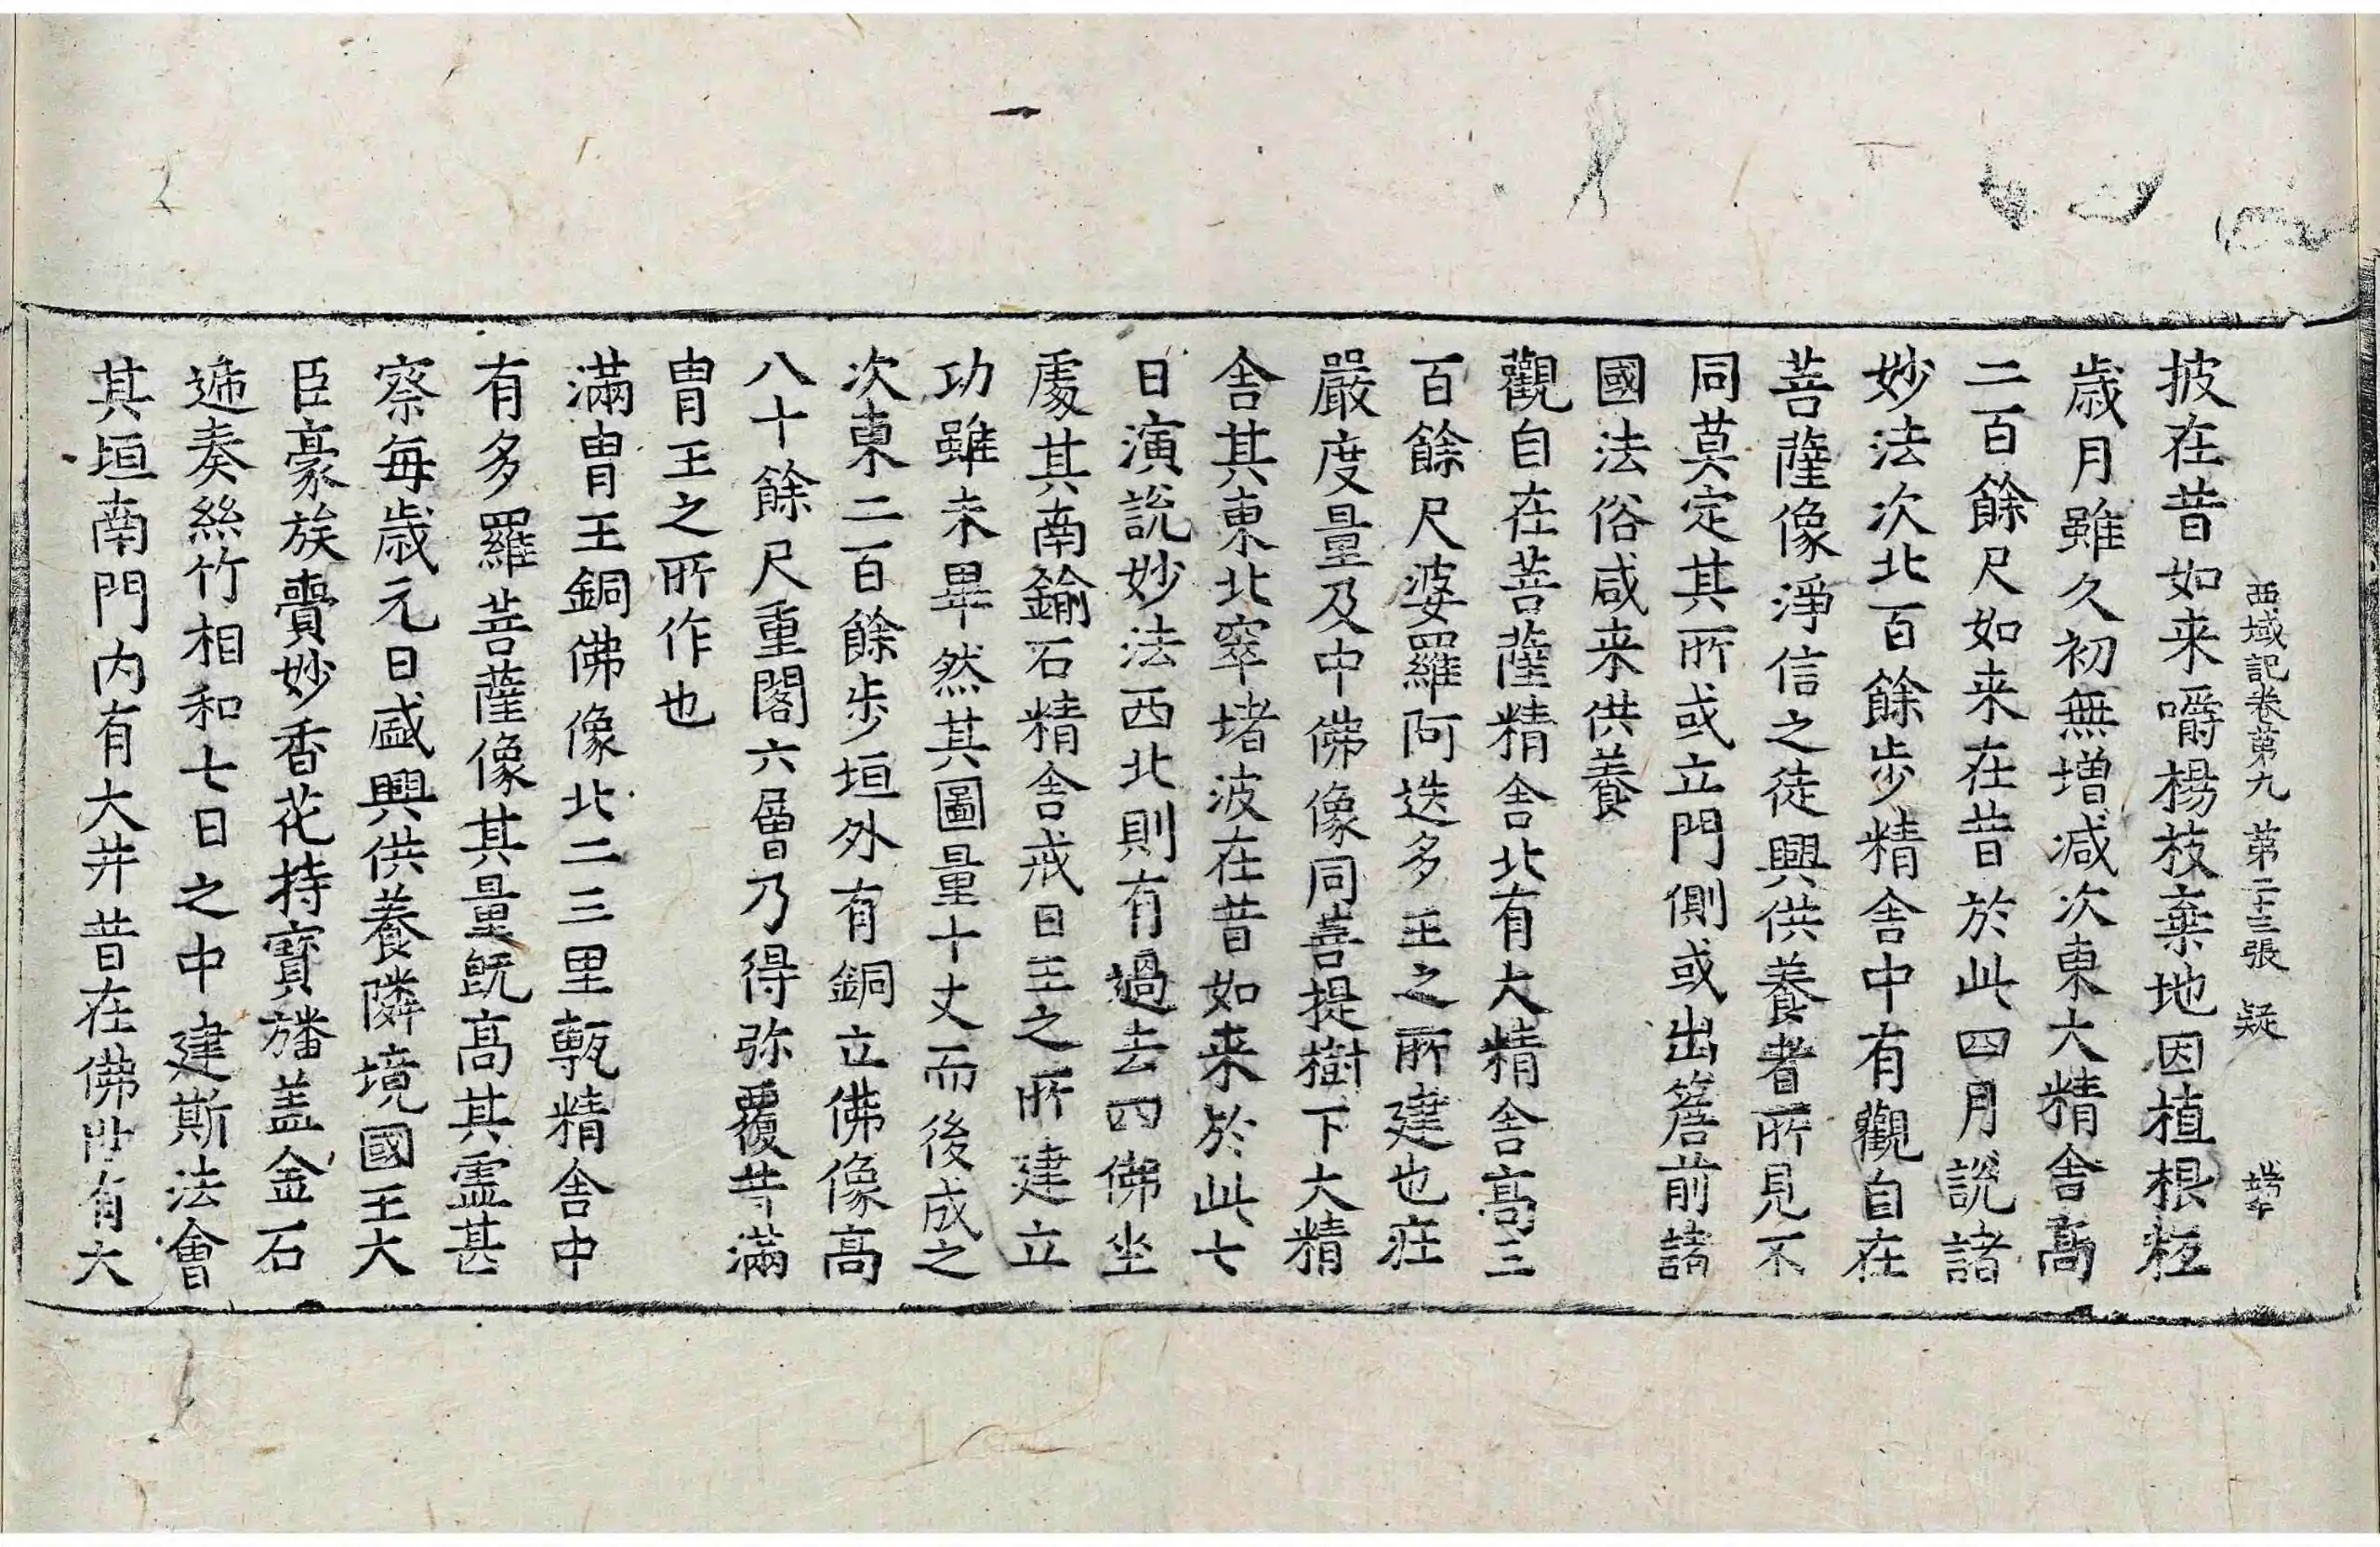 西域記卷第九 第二十三張 疑
披在昔如来嚼楊枝棄地因植根柢
歳月雖久初無増减次東大精舎髙
二百餘尺如来在昔於此四月說諸
妙法次北百餘步精舎中有觀自在
菩薩像淨信之徒興供養者所見不
同莫定其所或立門側或出簷前諸
國法俗咸来供養
觀自在菩薩精舎北有大精舎髙三
百餘尺婆羅阿迭多王之所建也莊
嚴度量及中佛像同菩提樹下大精
舎其東北窣堵波在昔如来於此七
日演說妙法西北則有過去四佛坐
處其南鍮石精舎戒日王之所建立
功雖未畢然其圖量十丈而後成之
次東二百餘步垣外有銅立佛像髙
八十餘尺重閣六層乃得弥覆昔滿
胄王之所作也
滿胄王銅佛像北二三里甎精舎中
有多羅菩薩像其量旣髙其靈甚
察每歳元日盛興供養隣境國王大
臣豪族賷妙香花持寳旛盖金石
遞奏絲竹相和七日之中建斯法會
其垣南門内有大井昔在佛世有大